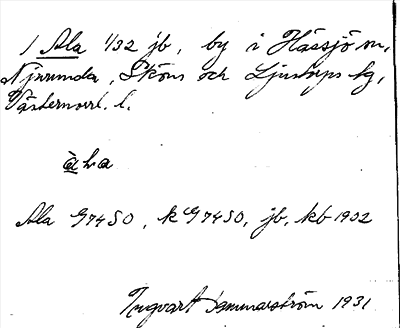 1 Ala 1/32 jb, by i Hässjö sn,
Njurunda, Sköns och Ljustorps tg,
Västernorrl. l.
àla
Ala G7450, k G7450, jb, kb 1932
Ingvart Hammarström 1931